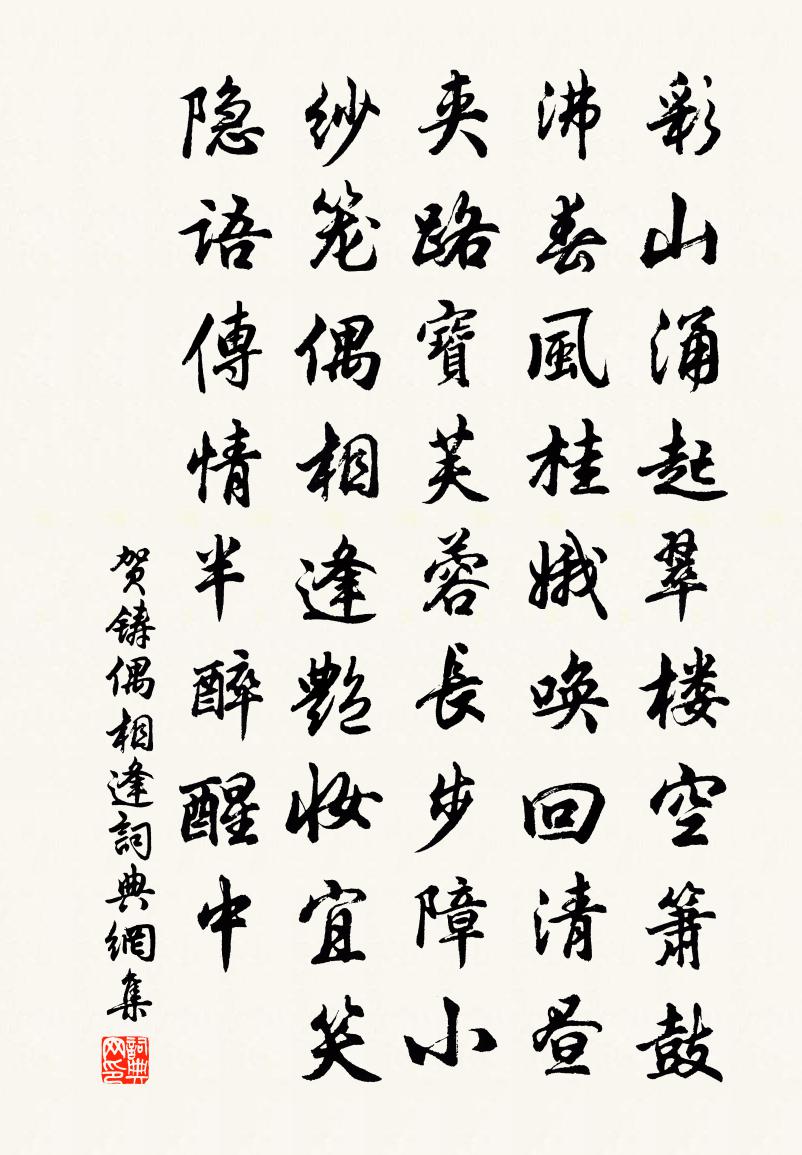 彩山涌起翠楼空箫鼓
沸春風桂娥唤回清昼
夹路寳芙蓉長步障小
纱笼偶相逢艷妆宜笑
隐语傳情半醉醒中
贺鑄偶相逢詞典網集
詞典网印